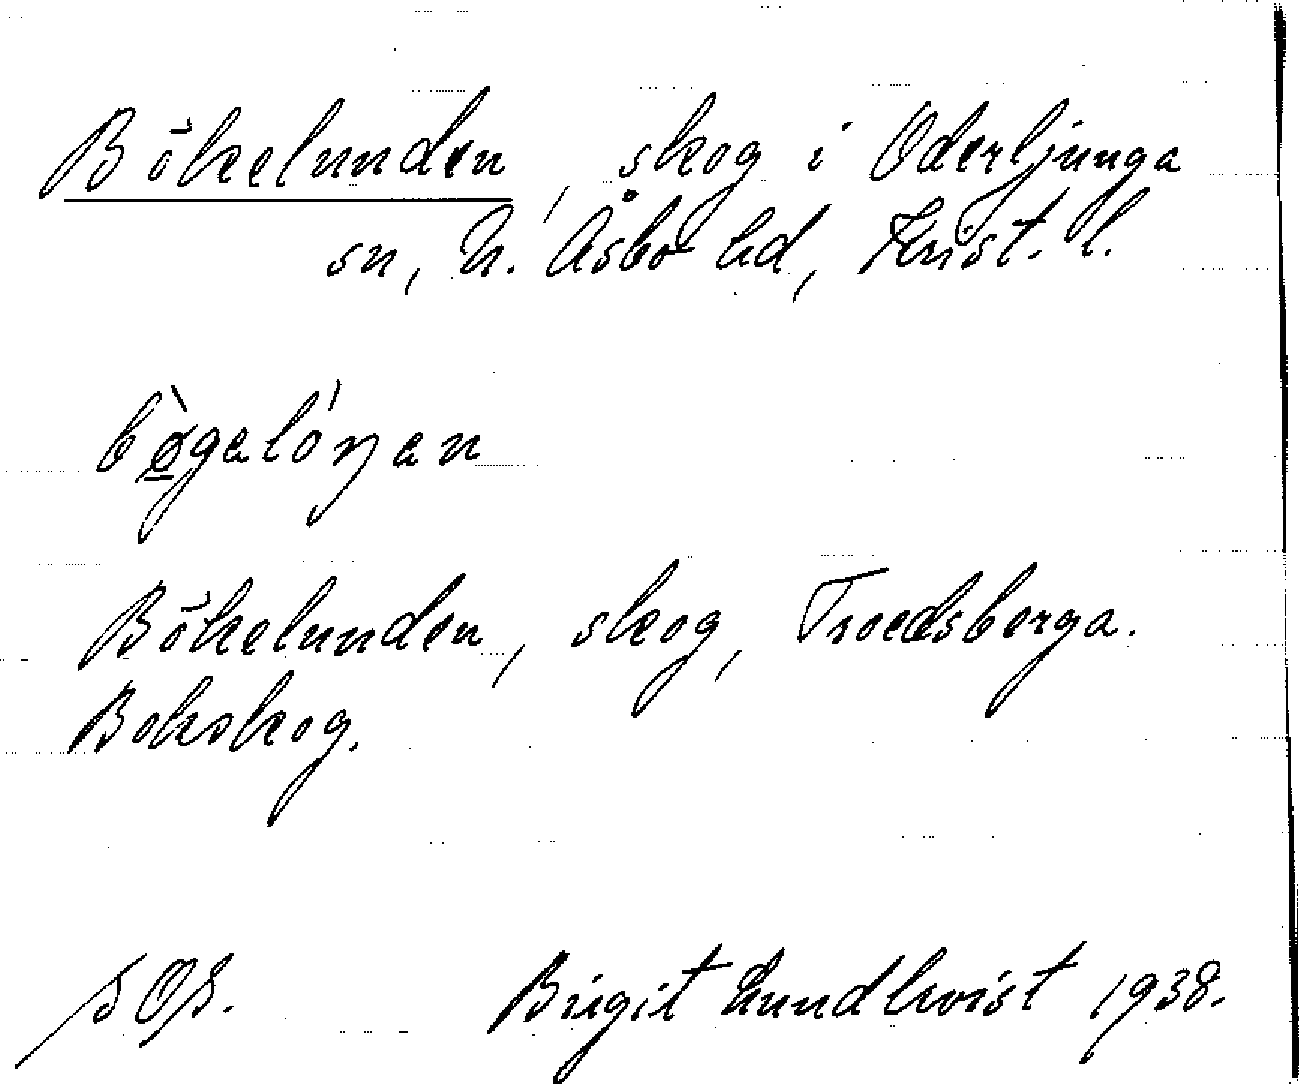 Bökelunden, skog i Oderljunga
sn, N. Åsbo hd, Krist. l.
Bökelunden, skog, Troedsberga.
Bokskog.
Birgit Lundkvist 1938.